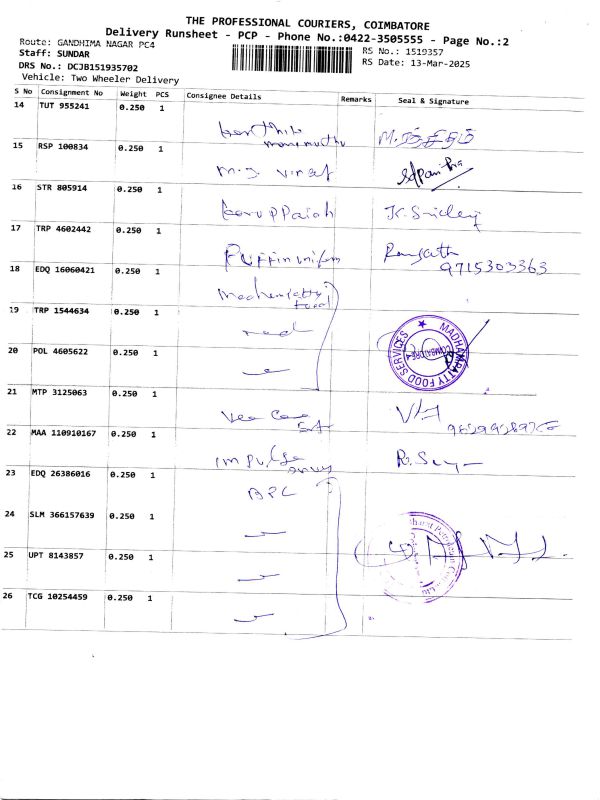 THE PROFESSIONAL COURIERS, COIMBATORE
Delivery Runsheet - PCP - Phone No.:0422-3505555 - Page No.:2
Route: GANDHIMA NAGAR PC4
RS No.: 1519357
Staff: SUNDAR
RS Date: 13-Mar-2025
DRS No.: DCJB151935702
Vehicle: Two Wheeler Delivery
S No Consignment No Weight PCS Consignee Details Remarks Seal & Signature
14 TUT 955241 0.250 1
15 RSP 100834 0.250 1
16 STR 805914 0.250 1
Karuppaiah
17 TRP 4602442 0.250 1
9715303363
18 EDQ 16060421 0.250 1
19 TRP 1544634 0.250 1
MADHAMPATTY FOOD SERVICES
COIMBATORE
20 POL 4605622 0.250 1
21 MTP 3125063 0.250 1
Vee Care
22 MAA 110910167 0.250 1
Impulse
23 EDQ 26386016 0.250 1
BPC
24 SLM 366157639 0.250 1
25 UPT 8143857 0.250 1
26 TCG 10254459 0.250 1